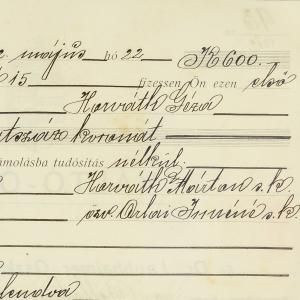 2. május hó 22 K 600.
15 fizessen Ön ezen első
Horváth Géza
atszáz koronát
ámolásba tudósítás nélkül.
Horváth Márton s.k.
özv. Orlai Imréné s.k.
lendva